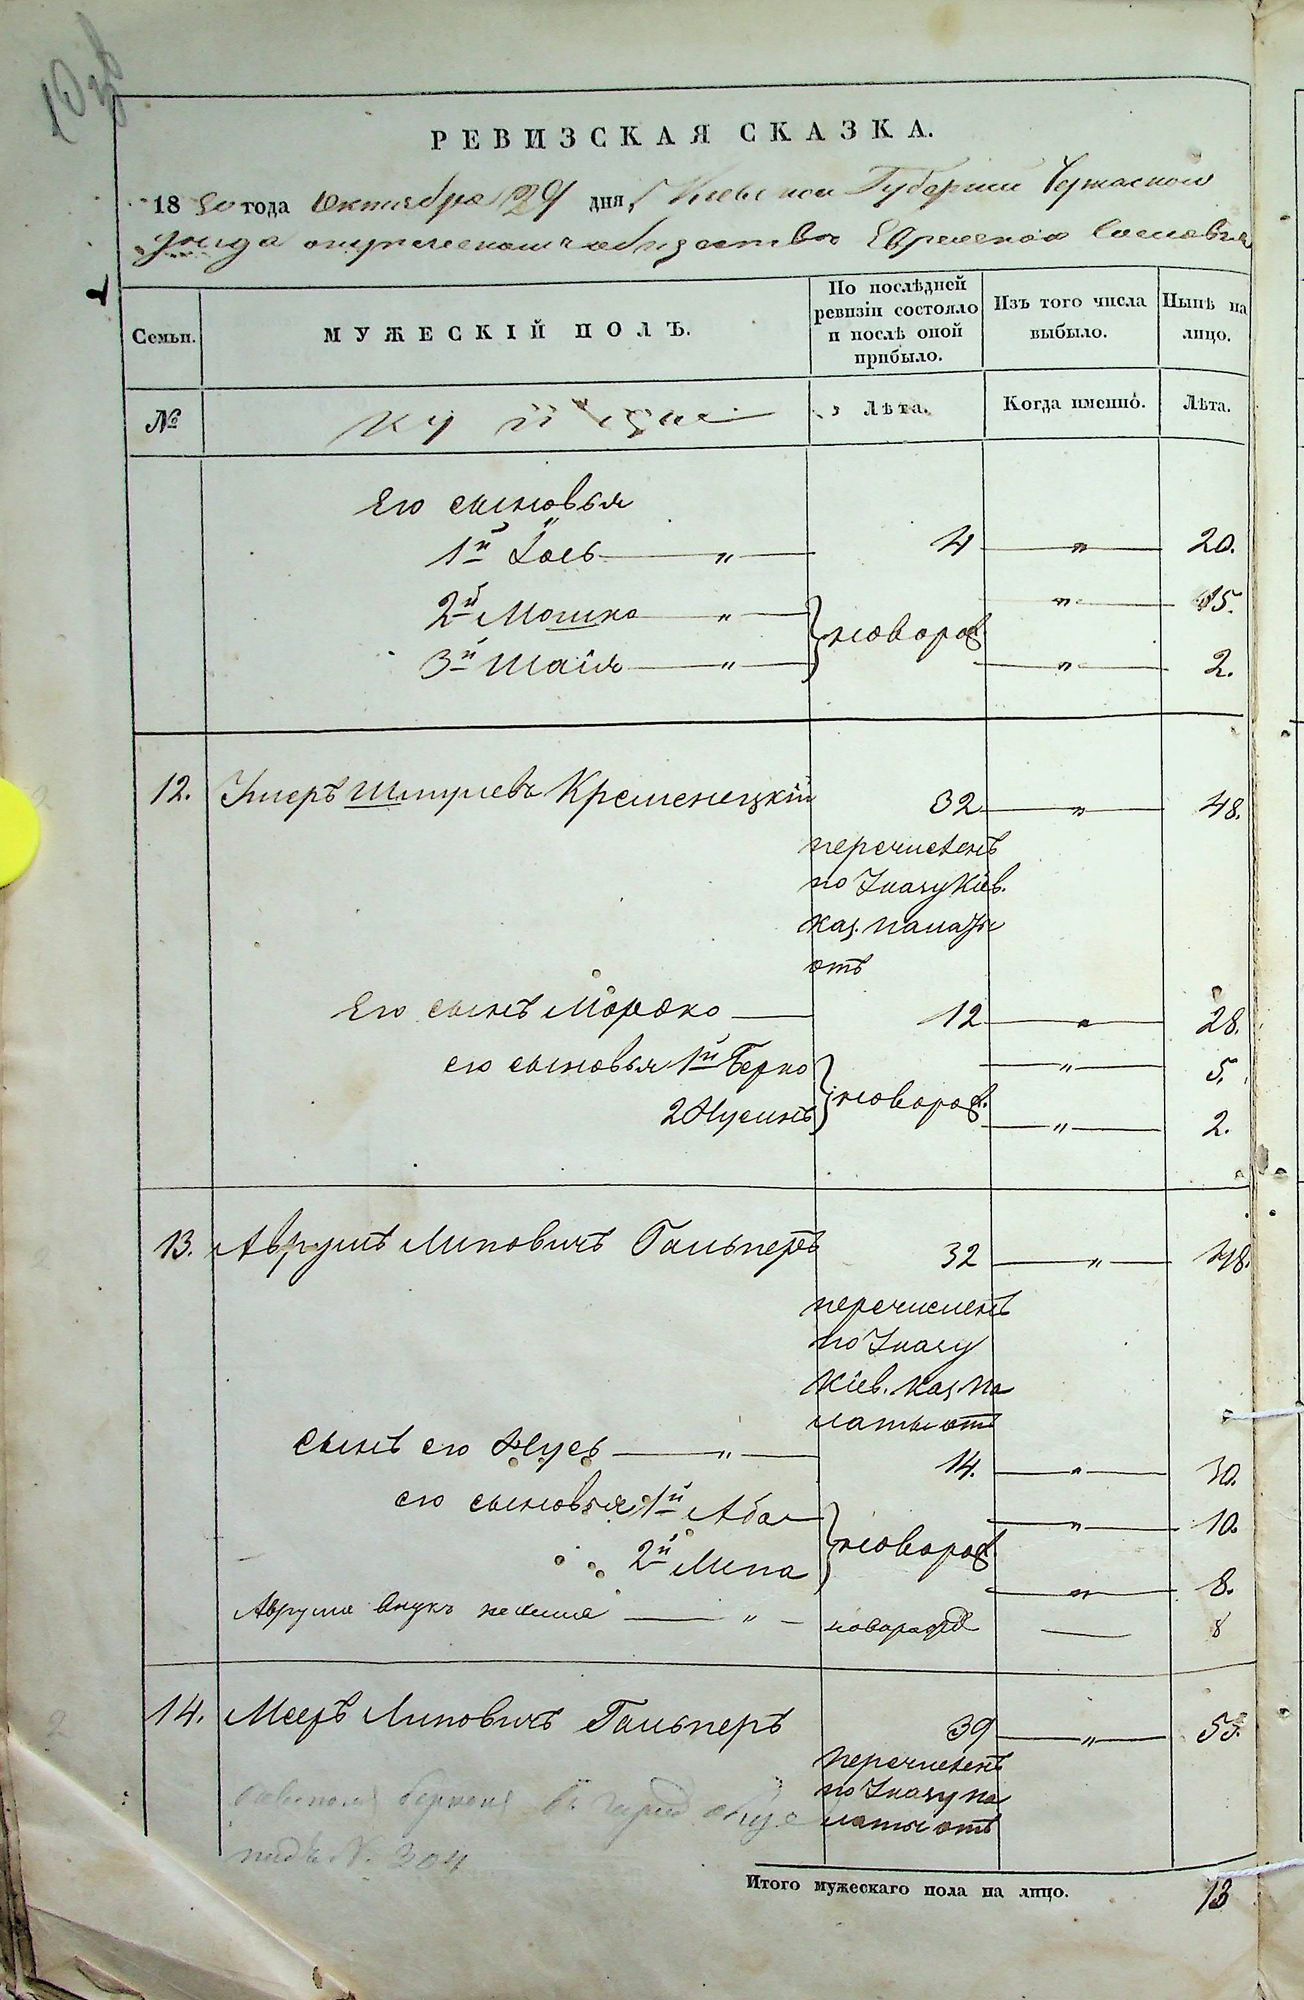 РЕВИЗСКАЯ СКАЗКА.
1850 года Октября 29 дня, Киевской Губернии Черкаского
уезда о купеческом обществе Еврейского Сословия
Семьи.
МУЖЕСКІЙ ПОЛЪ.
По послѣдней ревизіи состояло и послѣ оной прибыло.
Изъ того числа выбыло.
Нынѣ на лицо.
№
Лѣта.
Когда именно.
Лѣта.
Его сыновья
1й Іось — „ — 4 — „ — 20.
2й Мошко — „ — „ — 15.
новорож.
3й Шаія — „ — „ — 2.
12. Умеръ Шмулевъ Кременецкій 32 — „ — 48.
перечисленъ
по Указу Кіев.
каз. палаты
отъ
Его сынъ Мордко — 12 — „ — 28.
его сыновья 1й Берко — „ — 5.
новорож.
2 Нусинъ — „ — 2.
13. Аврумъ Липовичъ Гальперъ 32 — „ — 48.
перечисленъ
по Указу
Кіев. каз. Па
латы отъ
сынъ его Нусь — „ — 14. — „ — 30.
его сыновья 1й Аба — „ — 10.
новорож.
2й Липа — „ — 8.
Аврума внукъ — „ — новорожд — 8
14. Мееръ Липовичъ Гальперъ 39 — „ — 55.
перечисленъ
по Указу па
латы отъ
подъ N. 304
Итого мужескаго пола на лицо. 13